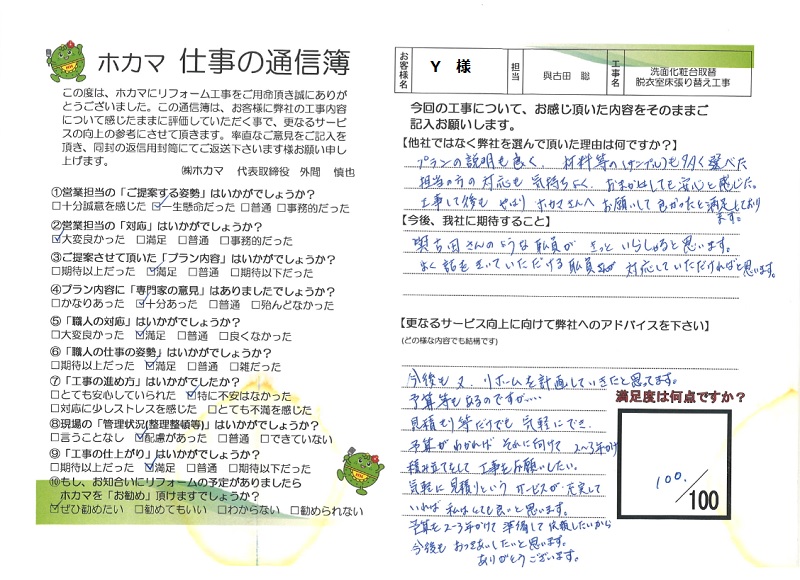 ホカマ 仕事の通信簿
この度は、ホカマにリフォーム工事をご用命頂き誠にありが
とうございました。この通信簿は、お客様に弊社の工事内容
について感じたままに評価していただく事で、更なるサービ
スの向上の参考にさせて頂きます。率直なご意見をご記入を
頂き、同封の返信用封筒にてご返送下さいます様お願い申し
上げます。
㈱ホカマ 代表取締役 外間 慎也
①営業担当の「ご提案する姿勢」はいかがでしょうか?
□十分誠意を感じた ☑一生懸命だった □普通 □事務的だった
②営業担当の「対応」はいかがでしょうか?
☑大変良かった □満足 □普通 □事務的だった
③ご提案させて頂いた「プラン内容」はいかがでしょうか?
□期待以上だった ☑満足 □普通 □期待以下だった
④プラン内容に「専門家の意見」はありましたでしょうか?
□かなりあった ☑十分あった □普通 □殆んどなかった
⑤「職人の対応」はいかがでしょうか?
□大変良かった ☑満足 □普通 □良くなかった
⑥「職人の仕事の姿勢」はいかがでしょうか?
□期待以上だった ☑満足 □普通 □雑だった
⑦「工事の進め方」はいかがでしたか?
□とても安心していられた ☑特に不安はなかった
□対応に少しストレスを感じた □とても不満を感じた
⑧現場の「管理状況(整理整頓等)」はいかがでしょうか?
□言うことなし ☑配慮があった □普通 □できていない
⑨「工事の仕上がり」はいかがでしょうか?
□期待以上だった ☑満足 □普通 □期待以下だった
⑩もし、お知合いにリフォームの予定がありましたら
ホカマを「お勧め」頂けますでしょうか?
☑ぜひ勧めたい □勧めてもいい □わからない □勧められない
お客様名 Y 様 担当 與古田 聡 工事名 洗面化粧台取替
脱衣室床張り替え工事
今回の工事について、お感じ頂いた内容をそのままご
記入お願いします。
【他社ではなく弊社を選んで頂いた理由は何ですか?】
プランの説明も良く、材料等の(サンプル)も多く選べた
担当の方の対応も気持ちよく、おまかせしても安心と感じた。
工事して後も やっぱり ホカマさんへ お願いして良かったと満足しており
ます。
【今後、我社に期待すること】
與古田さんのような社員が きっと いらしゃると思います。
よく話をきいていただける社員さんが 対応していただければと思います。
【更なるサービス向上に向けて弊社へのアドバイスを下さい】
(どの様な内容でも結構です)
今後も又、リホームを計画していきたと思ってます。
予算等もあるのですが‥‥
見積もり等だけでも 気軽にでき、
予算がわかれば それに向けて 2〜3年かけ
積み立てをして 工事をお願いしたい。
気軽に見積りという サービスが充実して
いれば 私はとても良いと思います。
予算を2〜3年かけて 準備して依頼したいから
今後も おつきあいしたいと思います。
ありがとうございます。
満足度は何点ですか?
100./100